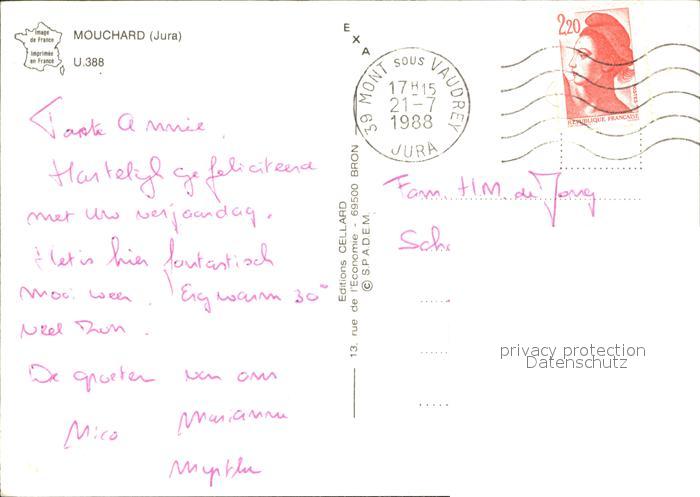 Image
de France
Imprimée
en France
MOUCHARD (Jura)
U.388
Tante Annie.
Hartelijk gefeliciteerd
met uw verjaardag.
Het is hier fantastisch
mooi weer. Erg warm 30°
veel zon.
De groeten van ons
Nico Marianne
Myrthe
EXA
Editions CELLARD
13, rue de l'Economie - 69500 BRON
© S.P.A.D.E.M.
39 MONT SOUS VAUDREY
17H15
21-7
1988
JURA
2,20
POSTES
REPUBLIQUE FRANÇAISE
Fam. H.M. de Jong
Sch
privacy protection
Datenschutz